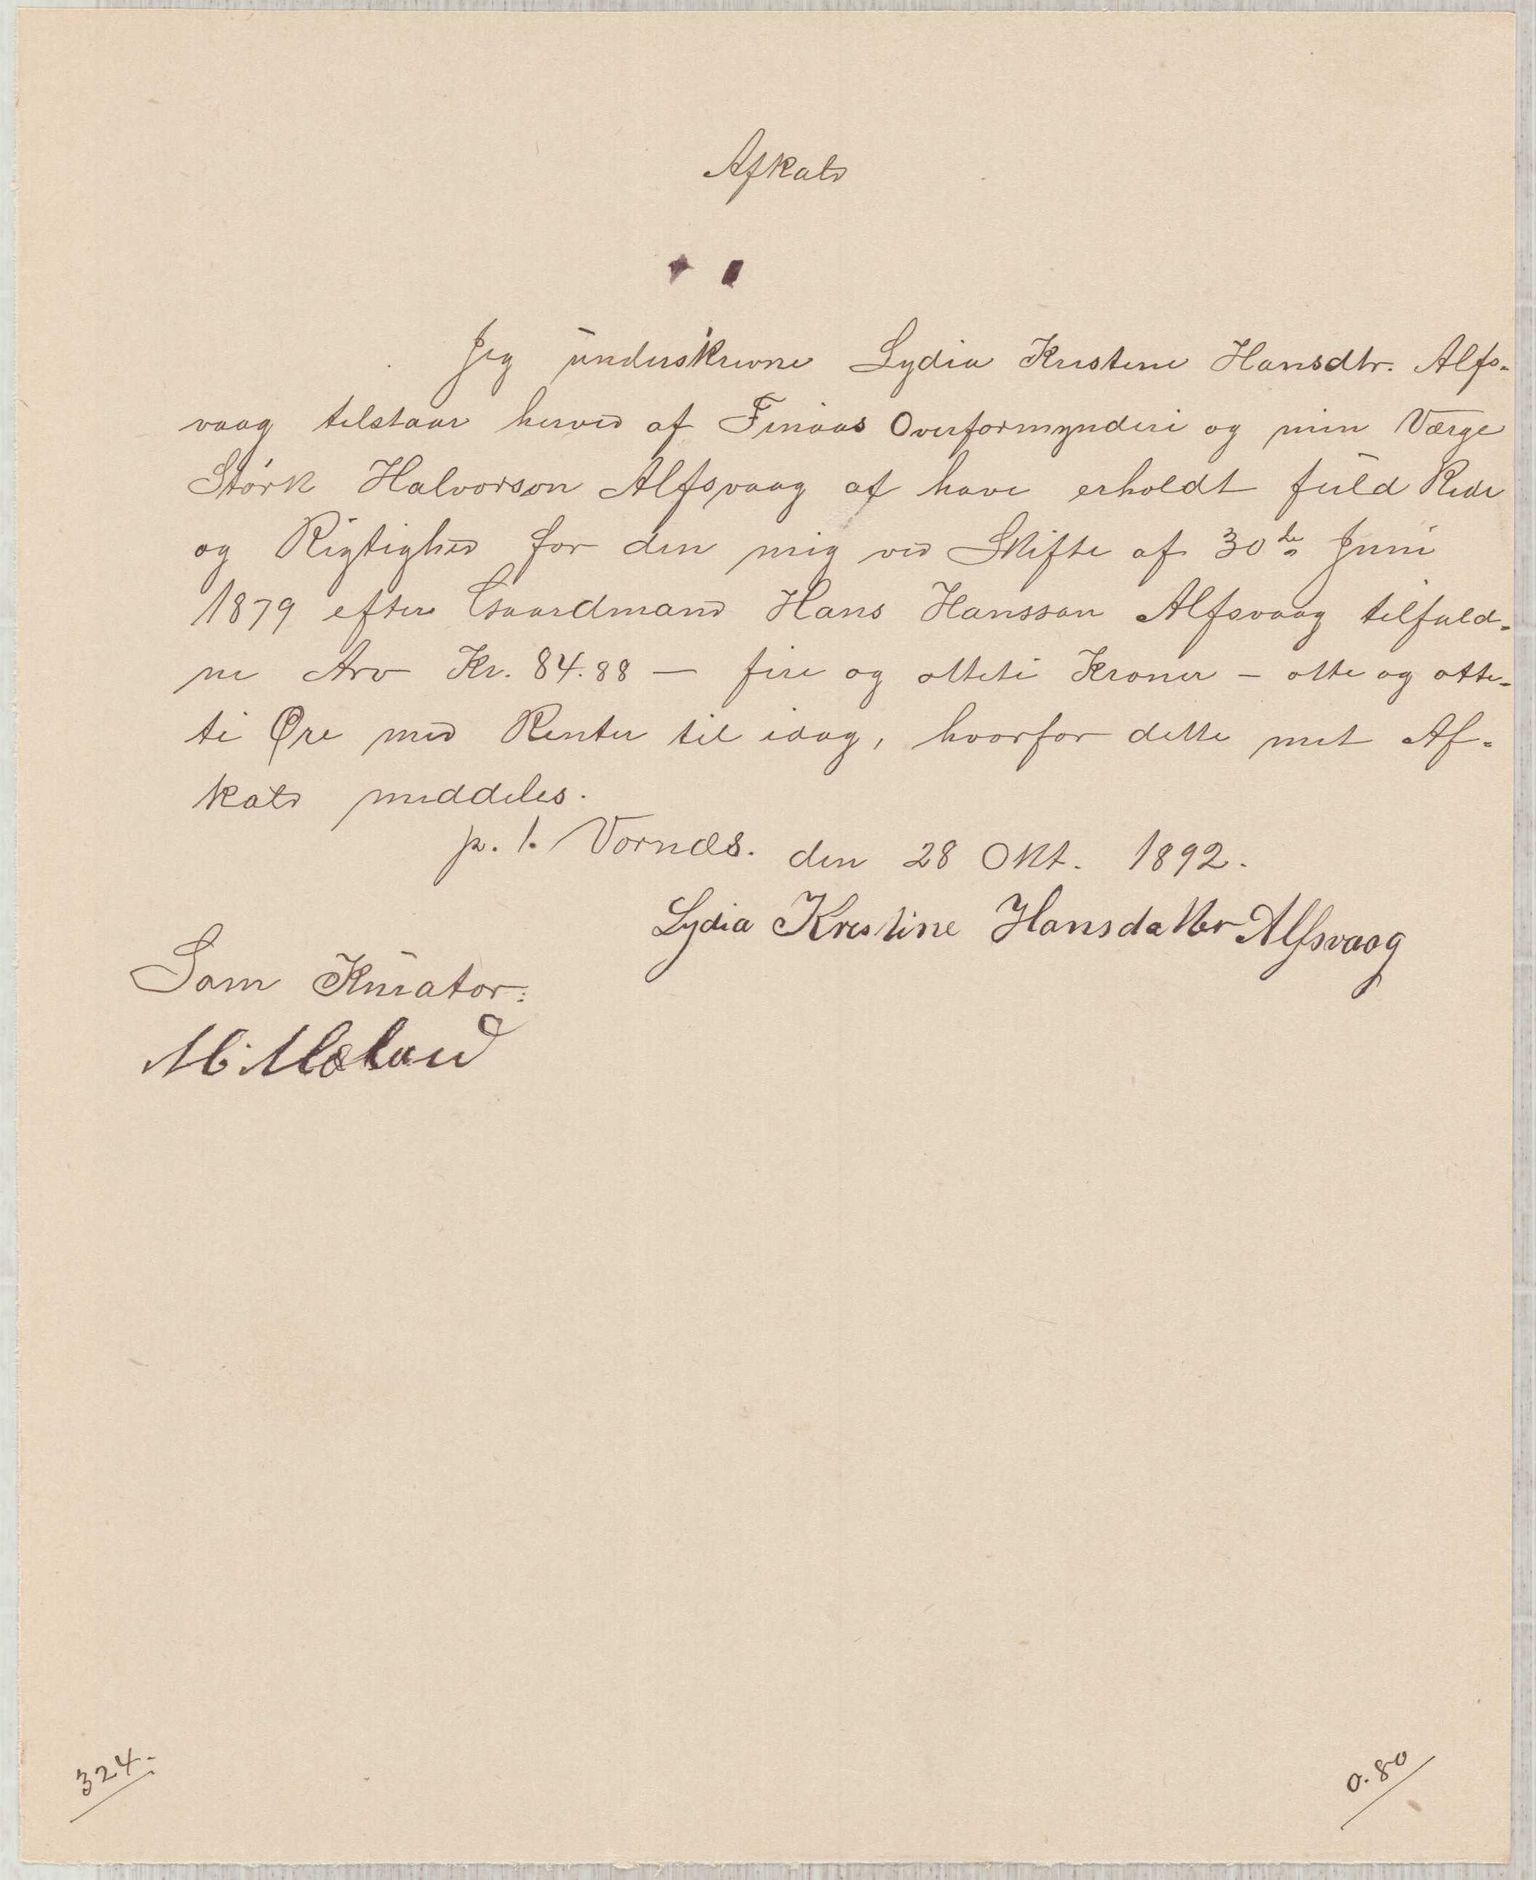 Afkald
Jeg underskrevne Lydia Kristine Hansdtr. Alfs-
vaag tilstaar herved af Finaas Overformynderi og min Værge
Størk Halvorson Alfsvaag at have erholdt fuld Rede
og Rigtighed for den mig ved Skifte af 30de Juni
1879 efter Gaardmand Hans Hansson Alfsvaag tilfald-
ne Arv Kr. 84.88 — fire og otteti Kroner - otte og otte-
ti Øre med Renter til idag, hvorfor dette mit Af-
kald meddeles.
p. t. Vornæs. den 28 Okt. 1892.
Lydia Kristine Hansdatter Alfsvaag
Som Kurator:
M. Mæland
324.
0.80